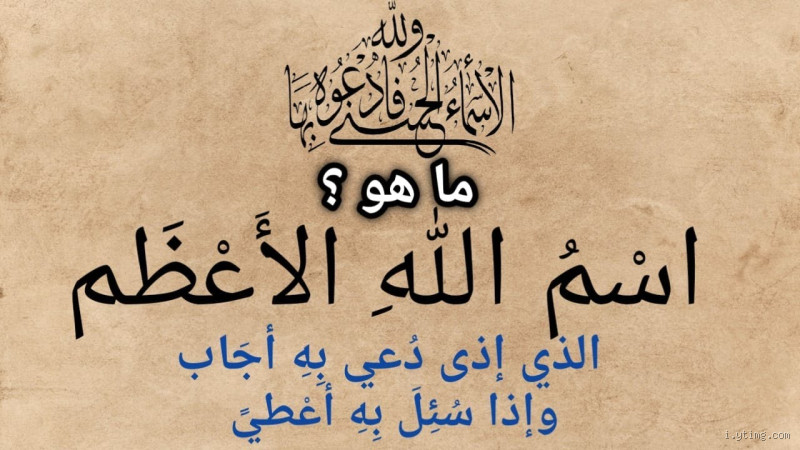 ولله
الأسماء الحسنى فادعوه بها
ما هو ؟
اسْمُ اللّٰهِ الأَعْظَم
الذي إذى دُعي بِهِ أجَاب
وإذا سُئِلَ بِهِ أعْطيً
i.ytimg.com